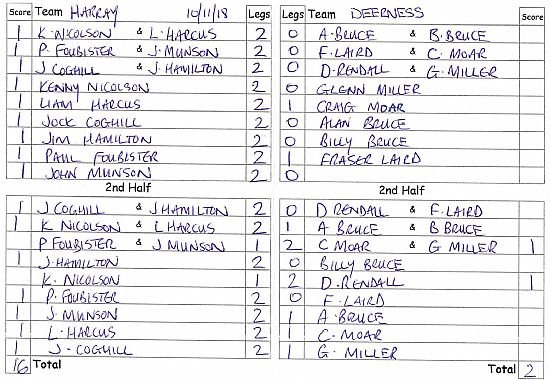 Score Team HARRAY 10/11/18 Legs Legs Team DEERNESS Score
1 K. NICOLSON & L. HARCUS 2 0 A. BRUCE & B. BRUCE
1 P. FOUBISTER & J. MUNSON 2 0 F. LAIRD & C. MOAR
1 J COGHILL & J. HAMILTON 2 0 D. RENDALL & G. MILLER
1 KENNY NICOLSON 2 0 GLENN MILLER
1 LIAM HARCUS 2 1 CRAIG MOAR
1 JOCK COGHILL 2 0 ALAN BRUCE
1 JIM HAMILTON 2 0 BILLY BRUCE
1 PAUL FOUBISTER 2 1 FRASER LAIRD
1 JOHN MUNSON 2 0
2nd Half 2nd Half
1 J COGHILL & J HAMILTON 2 0 D RENDALL & F. LAIRD
1 K NICOLSON & L HARCUS 2 1 A BRUCE & B BRUCE
P FOUBISTER & J MUNSON 1 2 C MOAR & G MILLER 1
1 J. HAMILTON 2 0 BILLY BRUCE
K. NICOLSON 1 2 D. RENDALL 1
1 P. FOUBISTER 2 0 F. LAIRD
1 J. MUNSON 2 1 A. BRUCE
1 L. HARCUS 2 1 C. MOAR
1 J. COGHILL 2 1 G. MILLER
16 Total Total 2